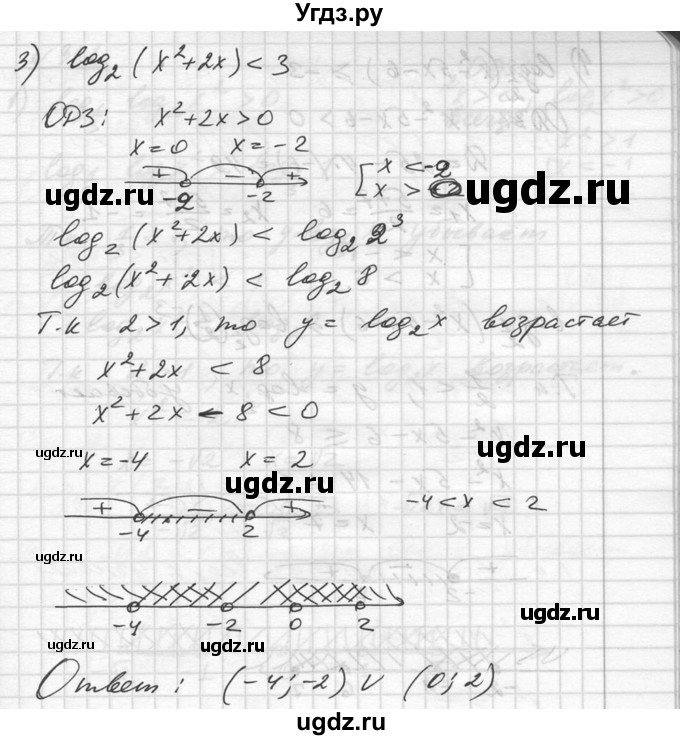 Угдз.ру
3) log₂(x²+2x) < 3
ОРЗ: x²+2x>0
x=0 x=-2
+ - + [ x <-2
-2 -2 x >
ugdz.ru ugdz.ru ugdz.ru
log₂(x²+2x) < log₂2³
log₂(x²+2x) < log₂8
Т.к 2>1, то y=log₂x возрастает
x²+2x < 8
x²+2x - 8 < 0
ugdz.ru ugdz.ru
x=-4 x=2
ugdz.ru
+ - + -4<x < 2
-4 2
ugdz.ru
ugdz.ru
-4 -2 0 2
ugdz.ru ugdz.ru
Ответ: (-4;-2) ∪ (0;2)
ugdz.ru